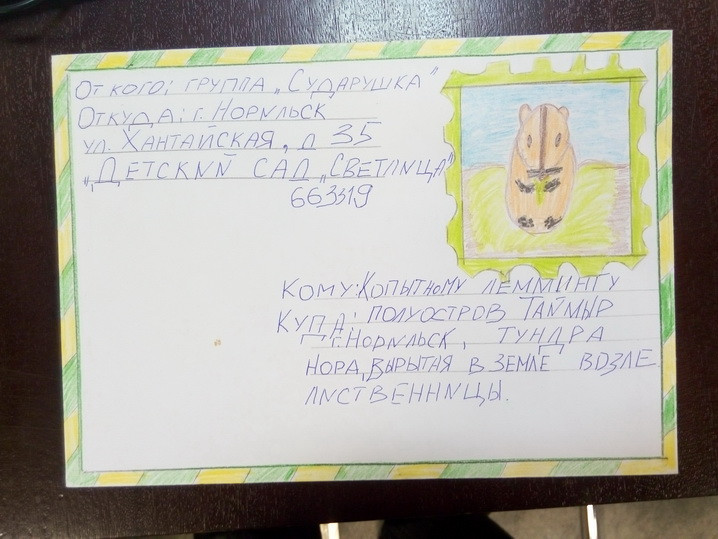 От кого: группа „Сударушка"
Откуда: г. Норильск
ул. Хантайская, д 35
„Детский сад „Светлица"
663319
Кому: Копытному леммингу
Куда: полуостров Таймыр
г. Норильск, тундра
нора, вырытая в земле возле
лиственницы.